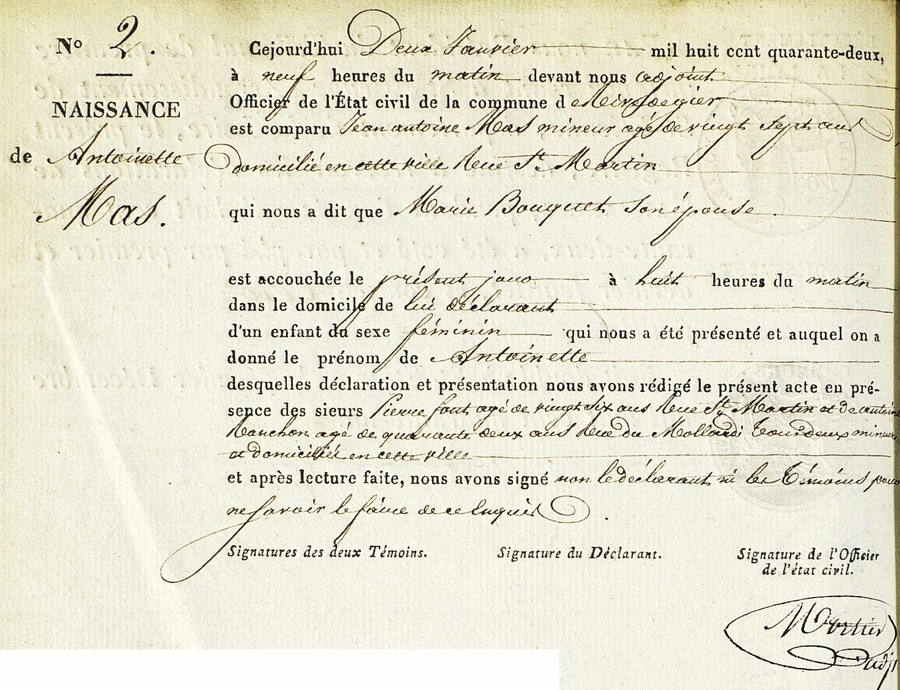 N° 2.
NAISSANCE
de Antoinette
Mas.
Cejourd'hui Deux Janvier mil huit cent quarante-deux,
à neuf heures du matin devant nous adjoint
Officier de l'État civil de la commune de Rive de gier
est comparu Jean antoine Mas mineur agé de vingt sept ans
domicilié en cette ville Rue St Martin
qui nous a dit que Marie Bouquet son épouse
est accouchée le présent jour à huit heures du matin
dans le domicile de lui déclarant
d'un enfant du sexe féminin qui nous a été présenté et auquel on a
donné le prénom de Antoinette
desquelles déclaration et présentation nous avons rédigé le présent acte en pré-
sence des sieurs Pierre font agé de vingt six ans Rue St Martin et de antoine
agé de quarante deux ans Rue du tous deux mineurs
et domiciliés en cette ville
et après lecture faite, nous avons signé non le déclarant ni les Témoins pour
ne savoir le faire de ce Enquis
Signatures des deux Témoins.
Signature du Déclarant.
Signature de l'Officier
de l'état civil.
adj